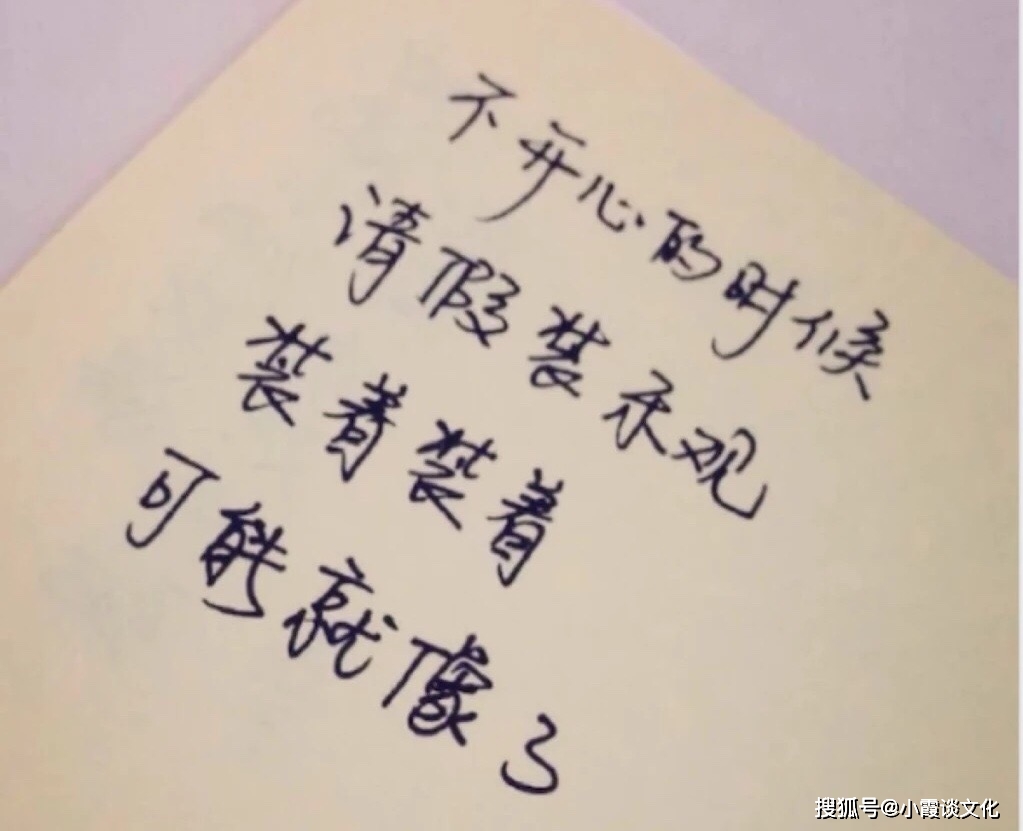 不开心的时候
请假装乐观
装着装着
可能就像了
搜狐号@小霞谈文化